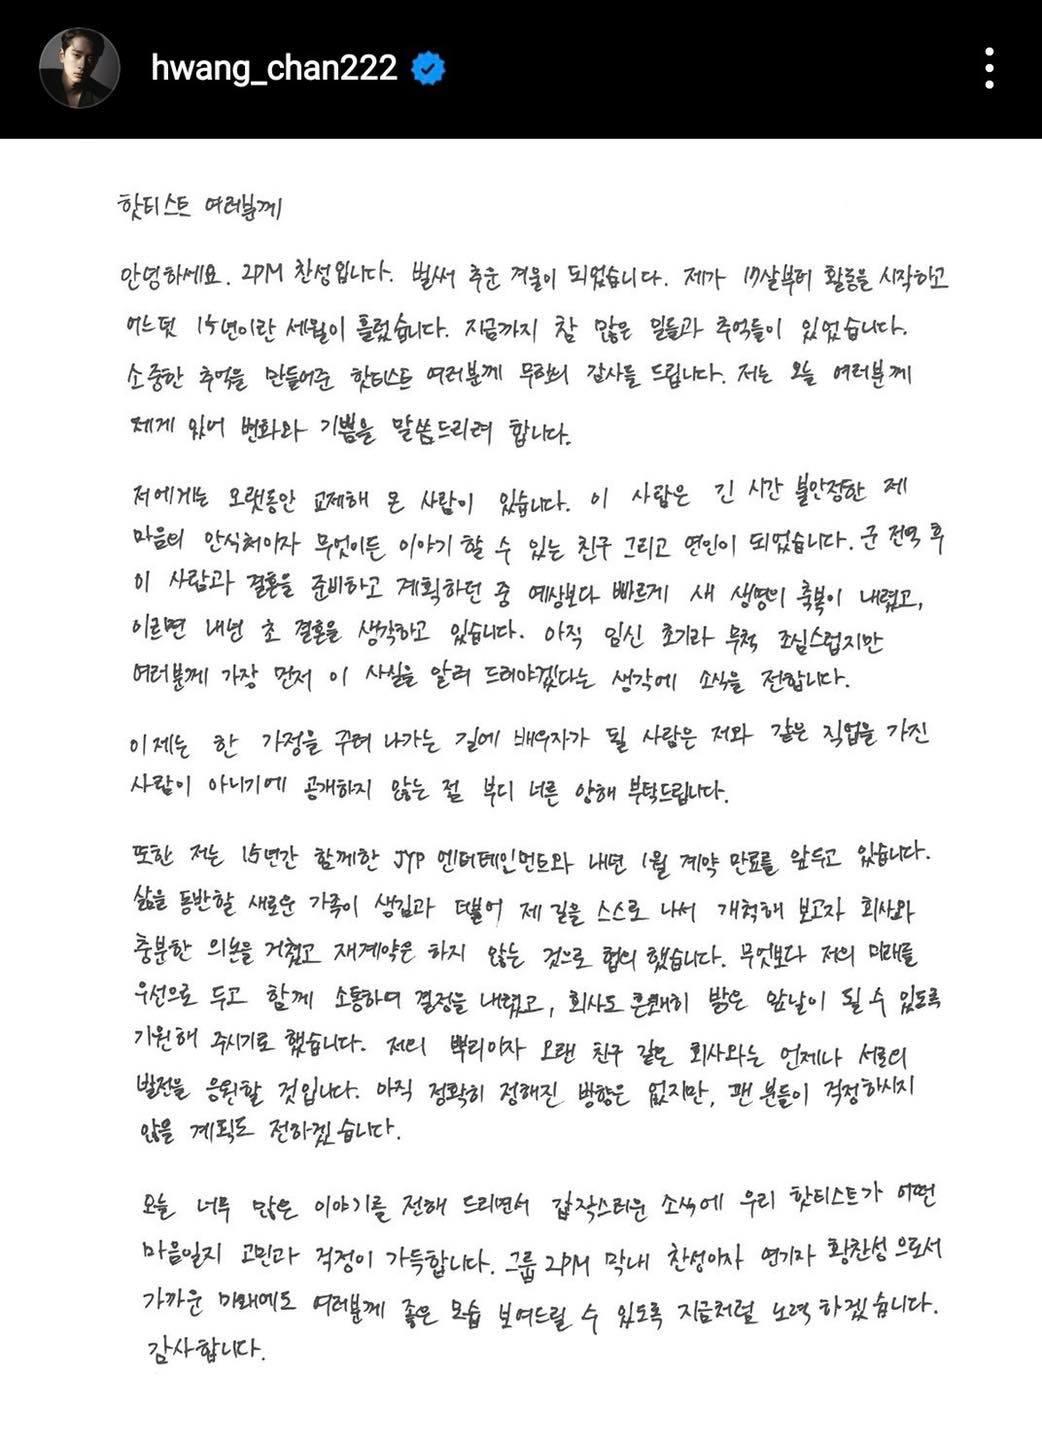 hwang_chan222
핫티스트 여러분께
안녕하세요. 2PM 찬성입니다. 벌써 추운 겨울이 되었습니다. 제가 17살부터 활동을 시작하고
어느덧 15년이란 세월이 흘렀습니다. 지금까지 참 많은 일들과 추억들이 있었습니다.
소중한 추억을 만들어준 핫티스트 여러분께 무한의 감사를 드립니다. 저는 오늘 여러분께
제게 있어 변화와 기쁨을 말씀드리려 합니다.
저에게는 오랫동안 교제해 온 사람이 있습니다. 이 사람은 긴 시간 불안정한 제
마음의 안식처이자 무엇이든 이야기 할 수 있는 친구 그리고 연인이 되었습니다. 군 전역 후
이 사람과 결혼을 준비하고 계획하던 중 예상보다 빠르게 새 생명의 축복이 내렸고,
이르면 내년 초 결혼을 생각하고 있습니다. 아직 임신 초기라 무척 조심스럽지만
여러분께 가장 먼저 이 사실을 알려 드려야겠다는 생각에 소식을 전합니다.
이제는 한 가정을 꾸려 나가는 길에 배우자가 될 사람은 저와 같은 직업을 가진
사람이 아니기에 공개하지 않는 점 부디 너른 양해 부탁드립니다.
또한 저는 15년간 함께한 JYP 엔터테인먼트와 내년 1월 계약 만료를 앞두고 있습니다.
삶을 동반할 새로운 가족이 생김과 더불어 제 길을 스스로 나서 개척해 보고자 회사와
충분한 의논을 거쳤고 재계약은 하지 않는 것으로 협의 했습니다. 무엇보다 저의 미래를
우선으로 두고 함께 소통하며 결정을 내렸고, 회사도 흔쾌히 밝은 앞날이 될 수 있도록
기원해 주시기로 했습니다. 저의 뿌리이자 오랜 친구 같은 회사와는 언제나 서로의
발전을 응원할 것입니다. 아직 정확히 정해진 방향은 없지만, 팬 분들이 걱정하시지
않을 계획도 전하겠습니다.
오늘 너무 많은 이야기를 전해 드리면서 갑작스러운 소식에 우리 핫티스트가 어떤
마음일지 고민과 걱정이 가득합니다. 그룹 2PM 막내 찬성이자 연기자 황찬성으로서
가까운 미래에도 여러분께 좋은 모습 보여드릴 수 있도록 지금처럼 노력하겠습니다.
감사합니다.